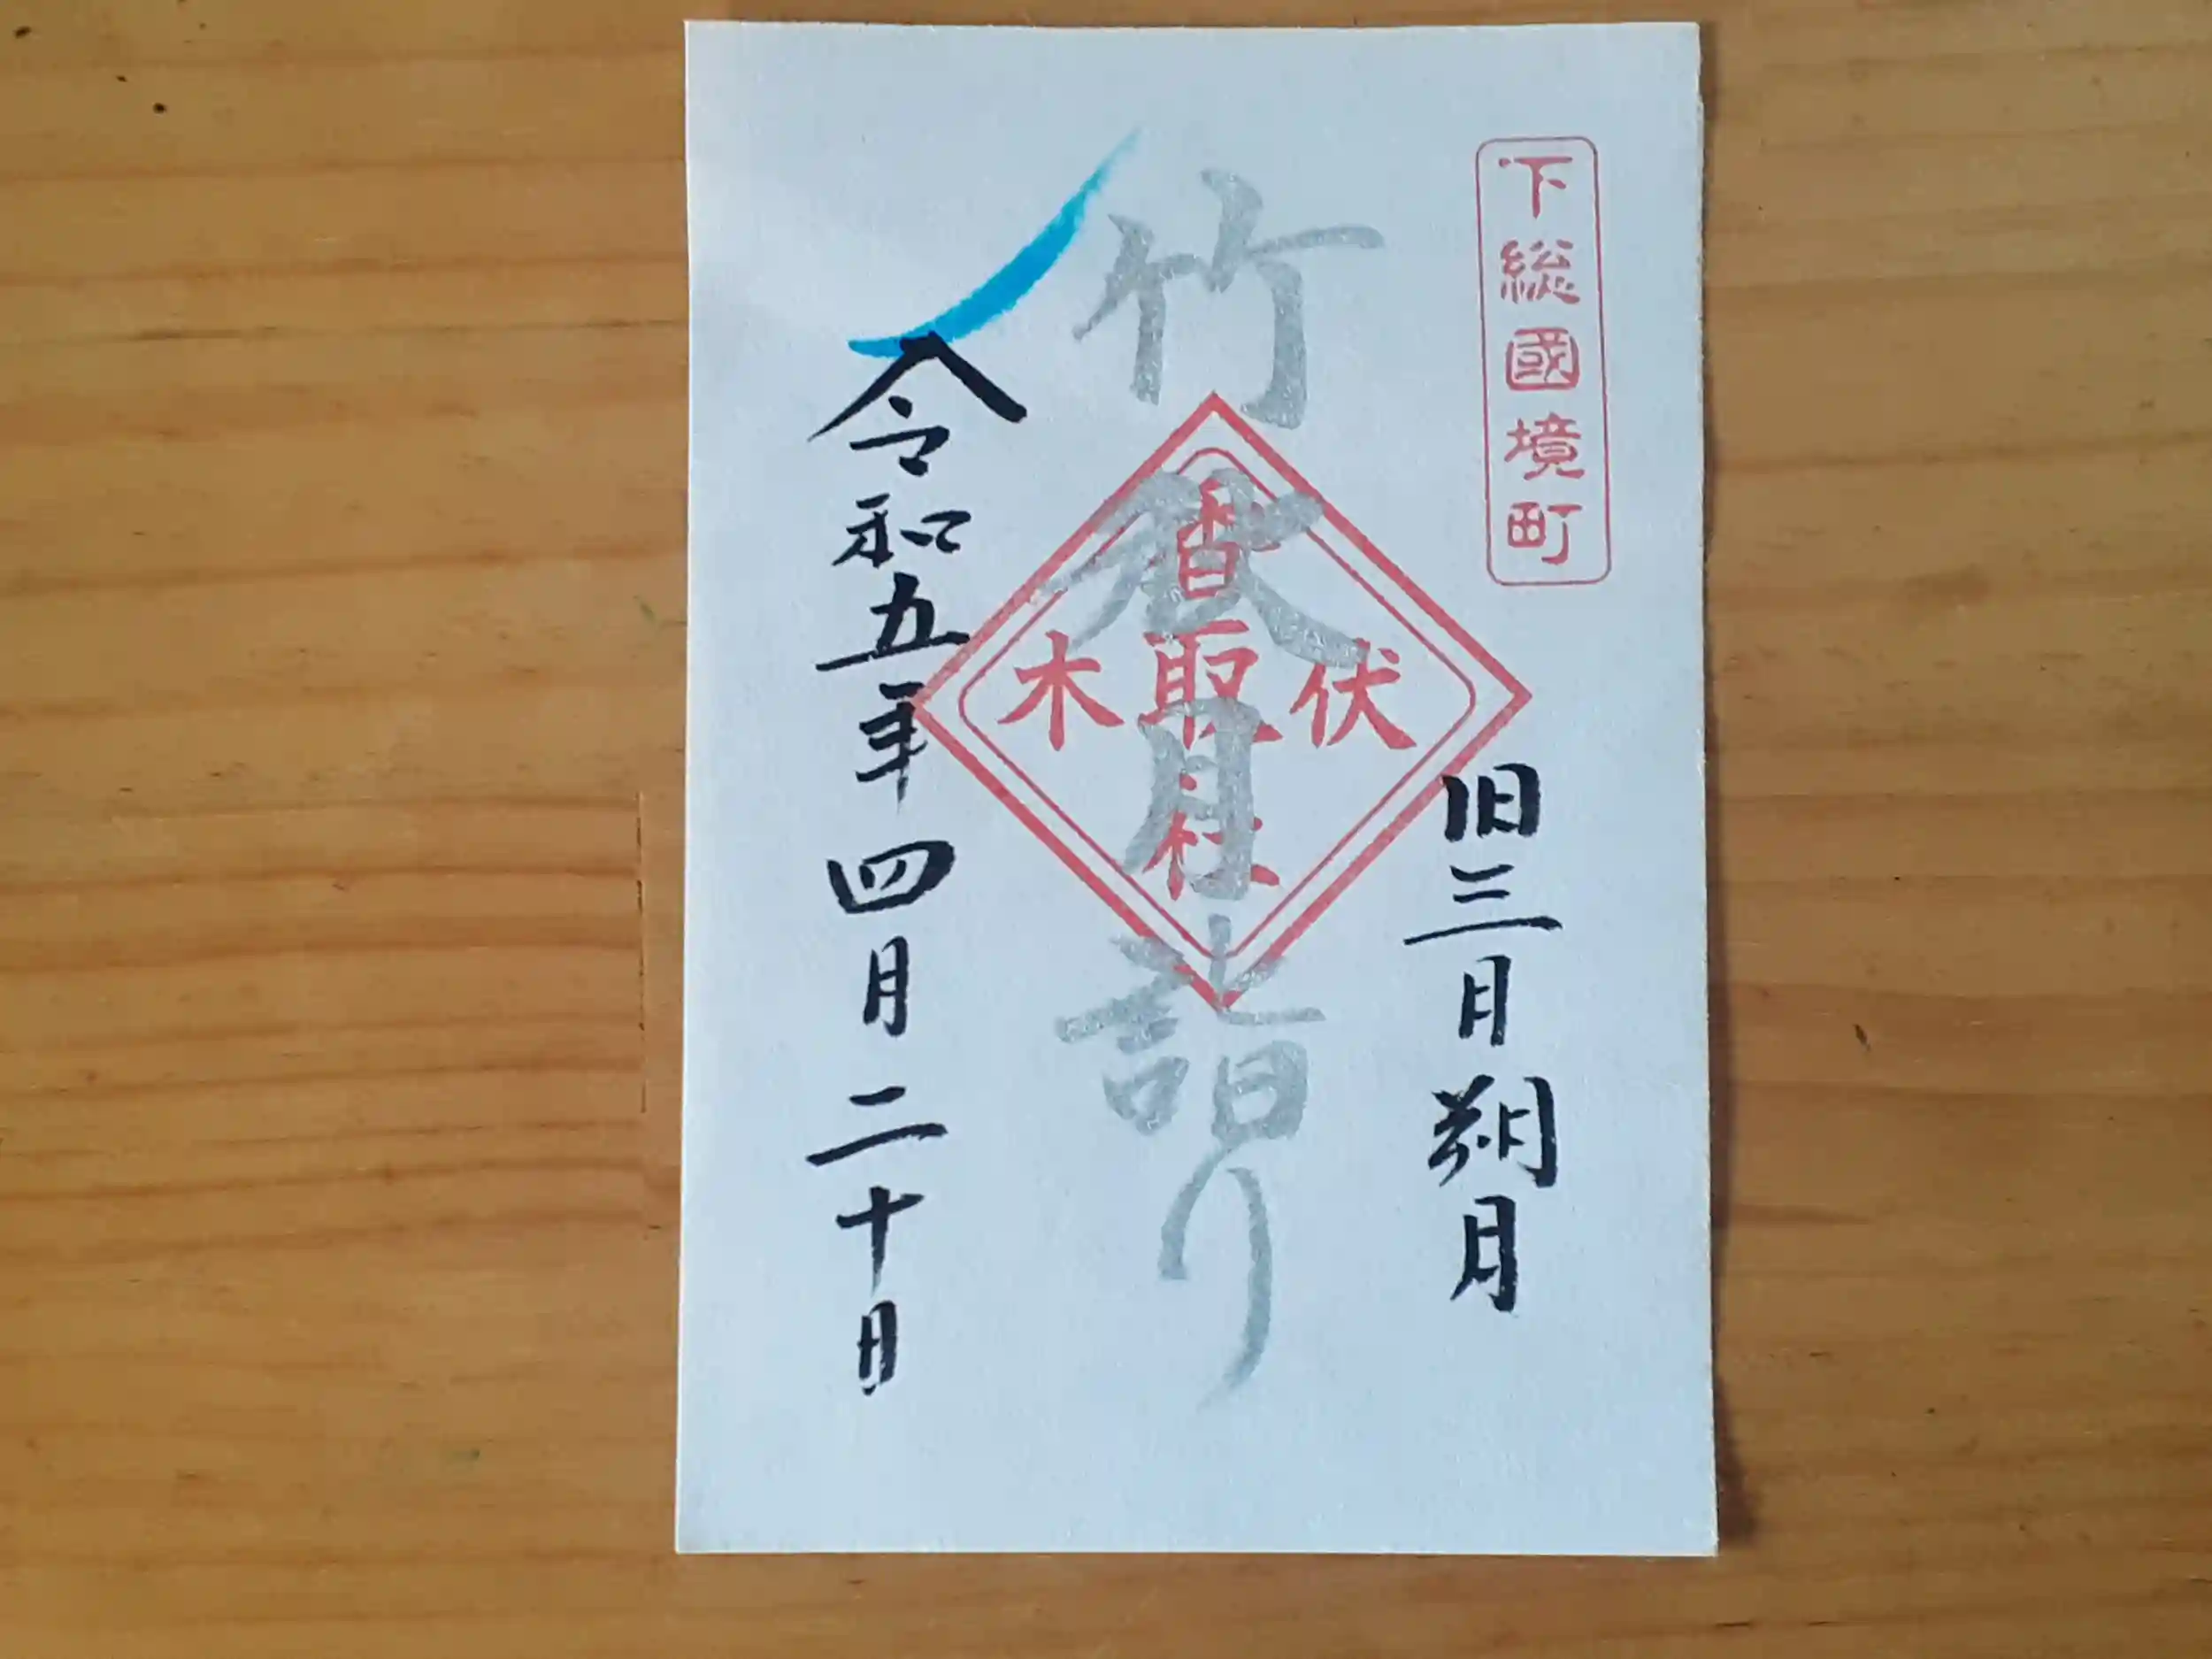 下総國境町
旧三月朔月
竹秋月詣り
香取社
伏木
令和五年四月二十日